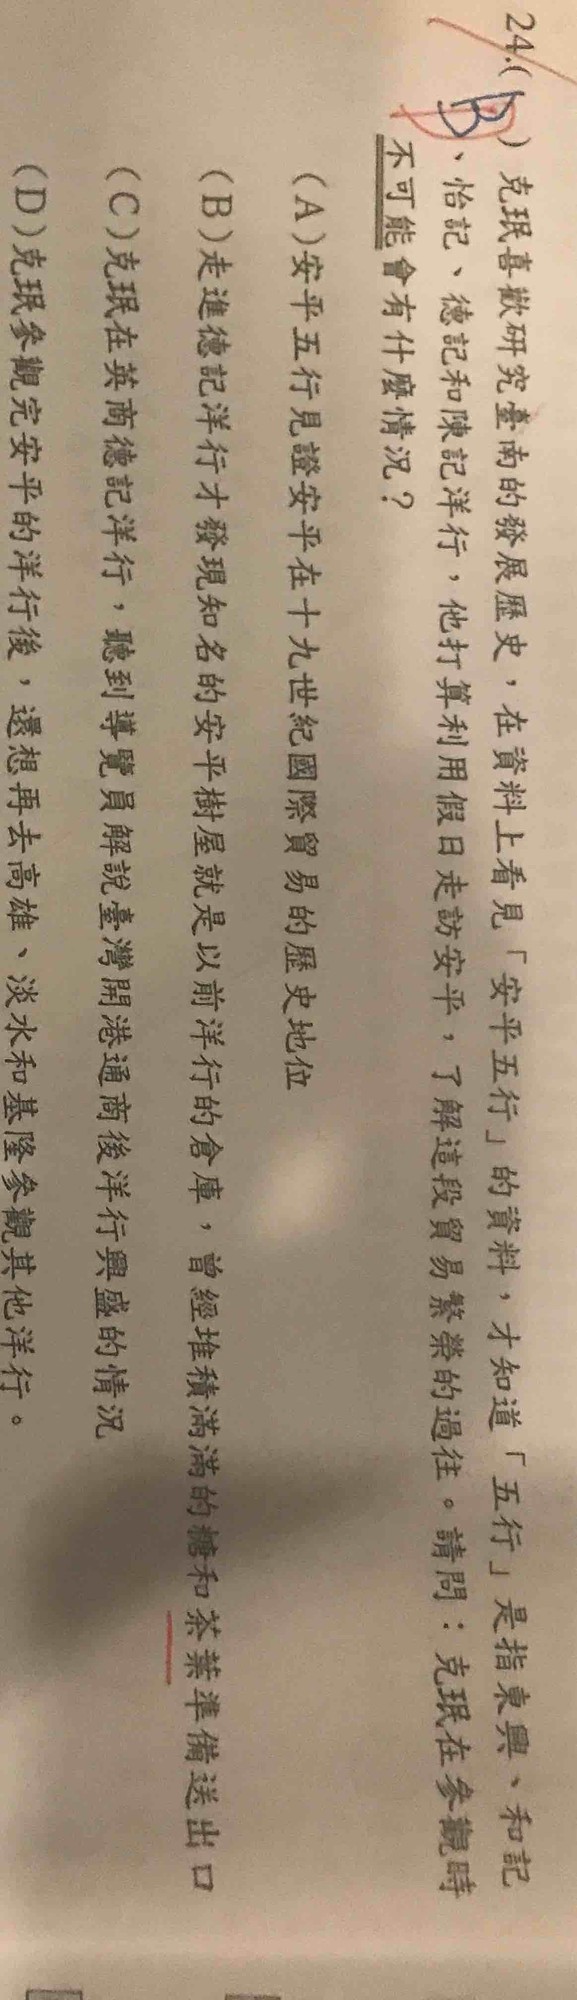 24.( B )克珉喜歡研究臺南的發展歷史，在資料上看見「安平五行」的資料，才知道「五行」是指東興、和記
、怡記、德記和陳記洋行，他打算利用假日走訪安平，了解這段貿易繁榮的過往。請問：克珉在參觀時
不可能會有什麼情況？
(A)安平五行見證安平在十九世紀國際貿易的歷史地位
(B)走進德記洋行才發現知名的安平樹屋就是以前洋行的倉庫，曾經堆積滿滿的糖和茶葉準備送出口
(C)克珉在英商德記洋行，聽到導覽員解說臺灣開港通商後洋行興盛的情況
(D)克珉參觀完安平的洋行後，還想再去高雄、淡水和基隆參觀其他洋行。